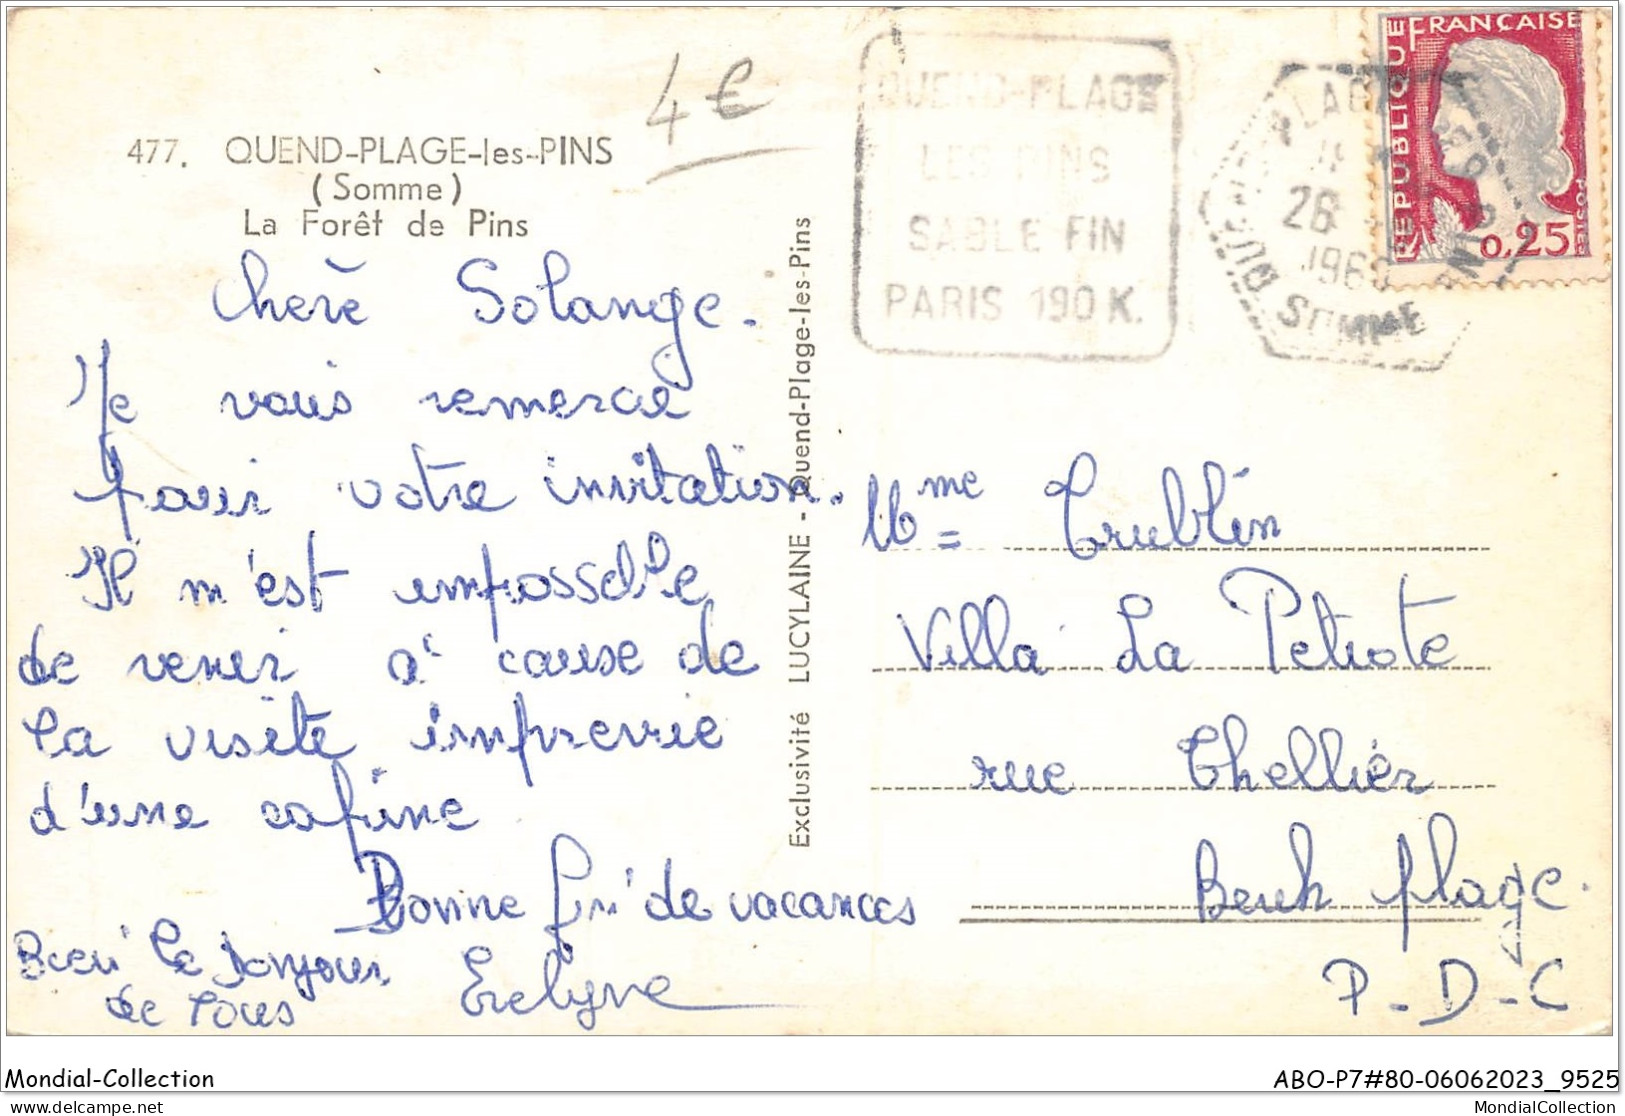 477. QUEND-PLAGE-les-PINS
(Somme)
La Forêt de Pins
4€
Chère Solange.
Je vous remercie
pour votre invitation.
Il m'est impossible
de venir à cause de
la visite imprevue
d'une copine
Bonne fin de vacances
Bien le bonjour
de tous
Evelyne
Exclusivité LUCYLAINE - Quend-Plage-les-Pins
QUEND-PLAGE
LES PINS
SABLE FIN
PARIS 190 K.
PLAGE
26
196
SOMME
REPUBLIQUE FRANÇAISE
POSTES
0,25
Mme Trublin
Villa La Petiote
rue Thellier
Berck plage.
P-D-C
Mondial-Collection
ABO-P7#80-06062023_9525
delcampe.net
MondialCollection